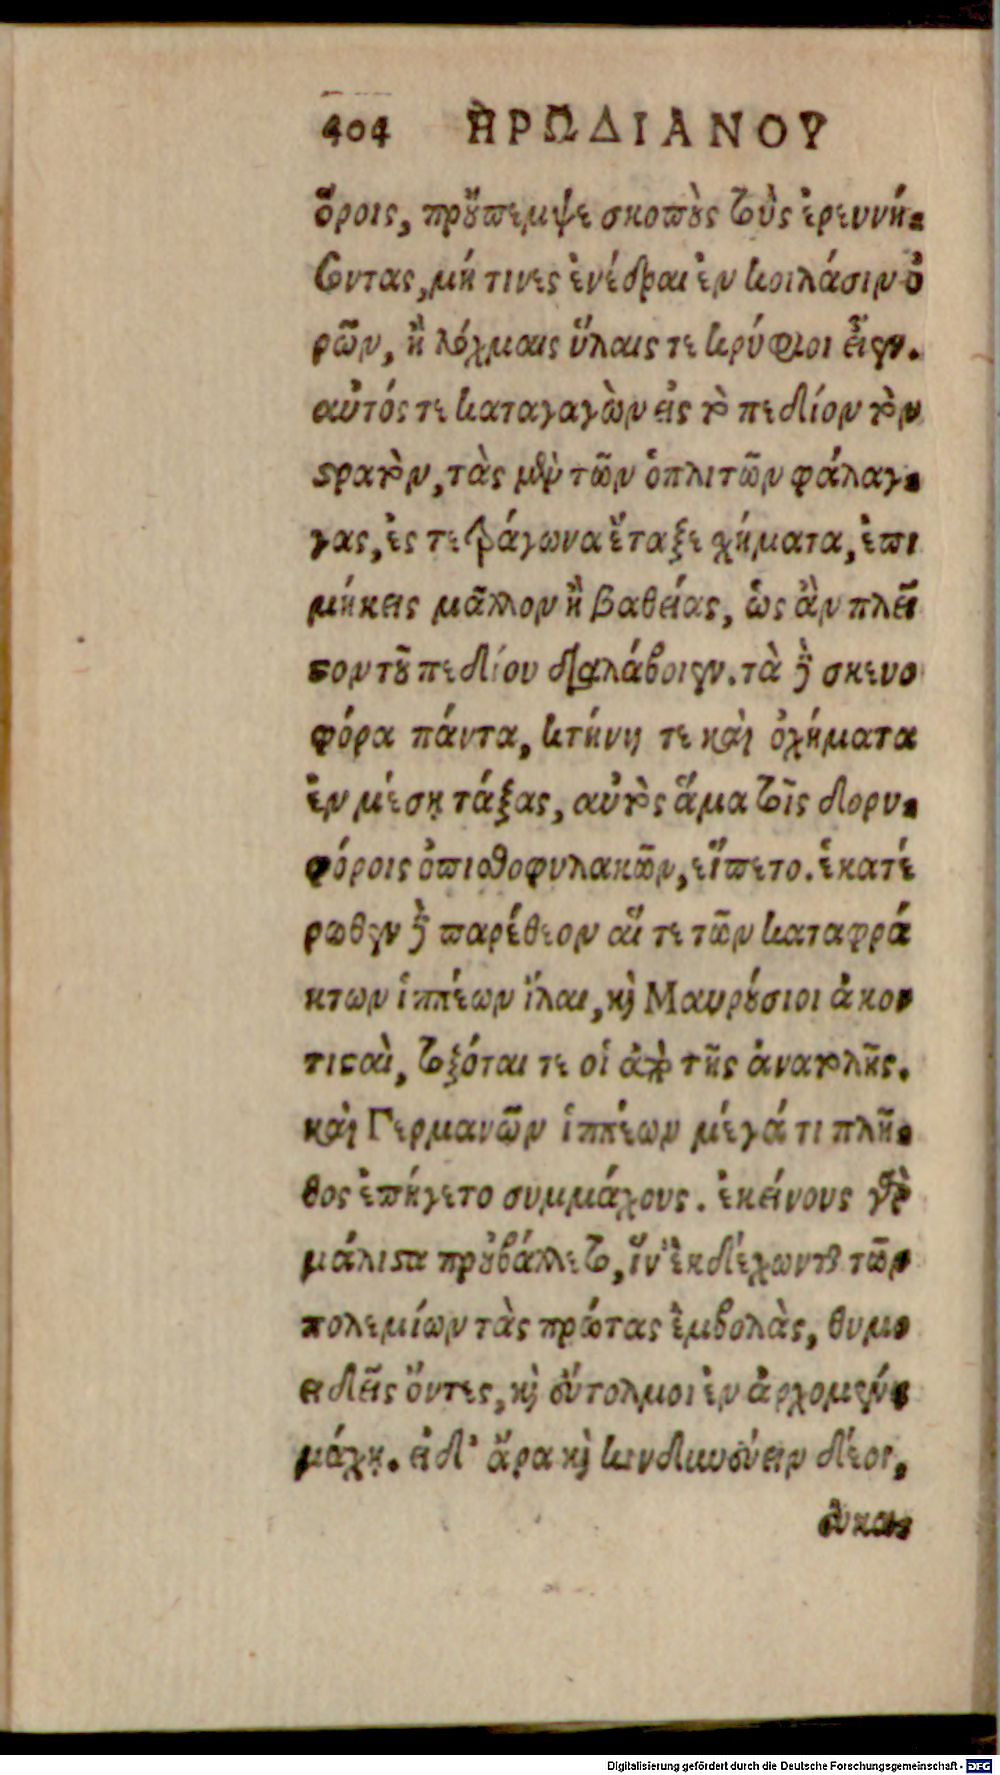 404 ΗΡΩΔΙΑΝΟΥ
ὅροις, πρὔπεμψε σκοποὺς τοὺς ἐρευνή-
σοντας, μή τινες ἐνέδραι ἐν κοιλάσιν ὀ
ρῶν, ἢ λόχμαις ὕλαις τε κρύφιοι εἶεν.
αὐτός τε καταγαγὼν εἰς τὸ πεδίον τὸν
στρατὸν, τὰς μὲν τῶν ὁπλιτῶν φάλαγ-
γας, ἐς τετράγωνα ἔταξε χήματα, ἐπι
μήκεις μᾶλλον ἢ βαθείας, ὡς ἂν πλεῖ
στον τοῦ πεδίου διαλάβοιεν. τὰ δὲ σκευο
φόρα πάντα, κτήνη τε καὶ ὀχήματα
ἐν μέσῃ τάξας, αὐτὸς ἅμα τοῖς δορυ-
φόροις ὀπισθοφυλακῶν, εἵπετο. ἑκατέ
ρωθεν δὲ παρέθεον αἵ τε τῶν καταφρά
κτων ἱππέων ἴλαι, καὶ Μαυρούσιοι ἀκον
τισταὶ, τοξόται τε οἱ ἀπὸ τῆς ἀνατολῆς.
καὶ Γερμανῶν ἱππέων μέγά τι πλῆ-
θος ἐπήγετο συμμάχους. ἐκείνους γὰρ
μάλιστα προὐβάλλετο, ἵν' ἐκδέχωνται τῶν
πολεμίων τὰς πρώτας ἐμβολὰς, θυμο
ειδεῖς ὄντες, καὶ εὔτολμοι ἐν ἀρχομένῃ
μάχῃ. εἰ δ' ἄρα καὶ κινδυνεύειν δέοι,
εὐκατ
Digitalisierung gefördert durch die Deutsche Forschungsgemeinschaft - DFG